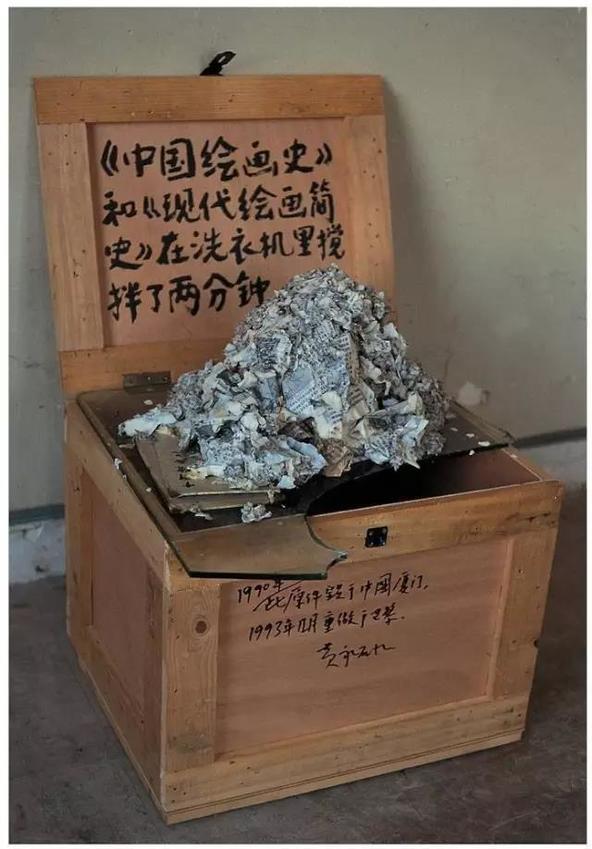 《中国绘画史》
和《现代绘画简
史》在洗衣机里搅
拌了两分钟
1990年此原件毁于中国厦门,
1993年12月重做于巴黎.
黄永砅